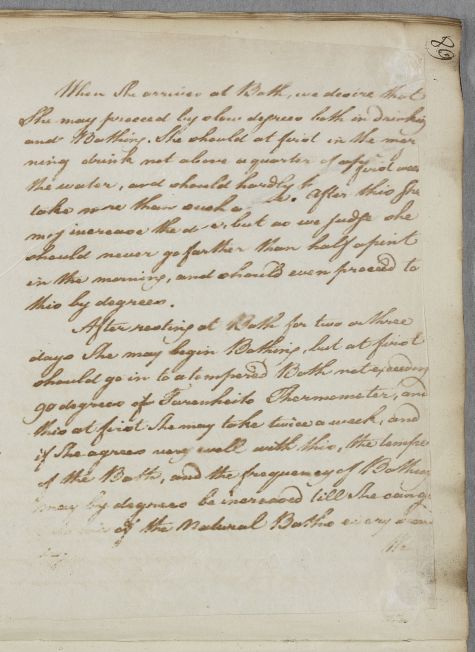 68
When She arrives at Bath, we desire that
She may proceed by slow degrees both in drinking
and Bathing. She should at first in the mor
ning drink not above a quarter of a
the water, and should hardly first week
take more than such a After this She
may increase the but as we judge she
should never go farther than half a pint
in the morning, and should even proceed to
this by degrees.
After resting at Bath for two or three
days She may begin Bathing, but at first
should go in to a tempered Bath not exceeding
90 degrees of Farenheits Thermometer, and
this at first She may take twice a week, and
if She agrees very well with this, the tempe
of the Bath, and the frequency of Bathing
may by degrees be increased till She can go
of the Natural Baths every